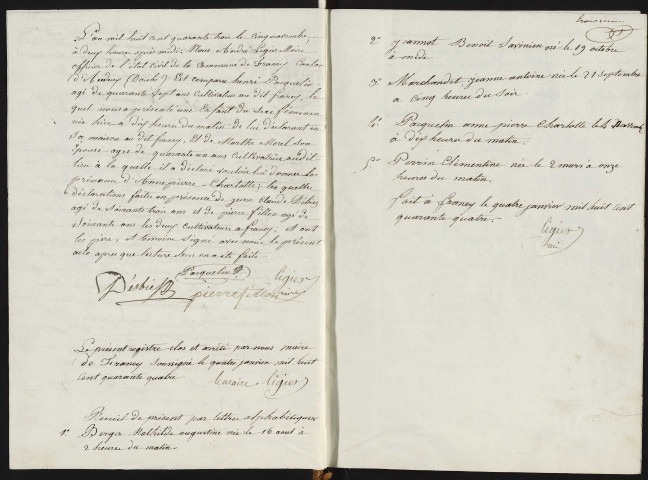 L'an mil huit cent quarante trois le cinq novembre,
à deux heures après midi. Nous André Légier Maire
officier de l'état civil de la Commune de Franey Canton
d'Audeux (Doubs). Est comparu Pacquelin
agé de quarante sept ans cultivateur au dit franey, le
quel nous a présenté une Enfant du sexe féminin
née hier à dix heures du matin de lui déclarant en
sa maison au dit franey, Et de Marthe Morel son
Epouse agée de quarante un ans cultivatrice audit
lieu à la quelle il a déclaré vouloir lui donner les
prénoms d'Anne pierre Charlotte; les quelles
déclarations faites en présence de jean Claude Débiez
agé de soixante trois ans et de pierre fillon agé de
soixante ans les deux cultivateurs a franey; et ont
les père, et témoins signé avec nous le présent
acte après que lecture leur en a été faite.
Pacquelin légier
Désbiez pierre fillon maire
Le présent registre clos et arrêté par nous maire
de Franey soussigné le quatre janvier mil huit
cent quarante quatre
le maire légier
Recueil du présent par lettre alphabétiques
1°. Berger Mathilde augustine née le 16 aout à
2 heures du matin.
2° Jeannot Benoit Savinien né le 19 octobre
a midi
3° Marchandet jeanne antoine née le 21 septembre
a cinq heures du soir
4° Pacquelin anne pierre Charlotte le 4 novembre
à dix heures du matin.
5° Perrin Clémentine née le 2 mars a onze
heures du matin.
Fait à franey le quatre janvier mil huit cent
quarante quatre.
légier